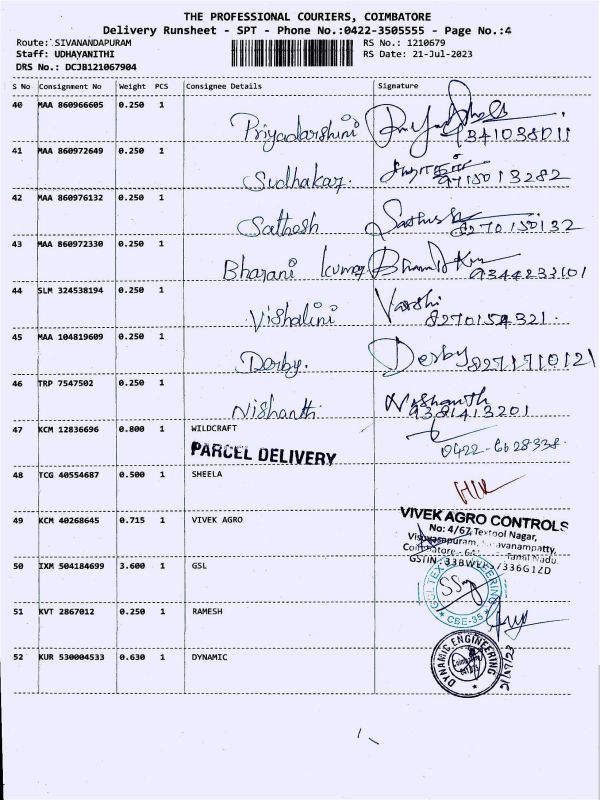 THE PROFESSIONAL COURIERS, COIMBATORE
Delivery Runsheet - SPT - Phone No.:0422-3505555 - Page No.:4
Route: SIVANANDAPURAM RS No.: 1210679
Staff: UDHAYANITHI RS Date: 21-Jul-2023
DRS No.: DCJB121067904
S No Consignment No Weight PCS Consignee Details Signature
40 MAA 860966605 0.250 1
Priyadarshini
41 MAA 860972649 0.250 1
Sudhakar. 9715013282
42 MAA 860976132 0.250 1
Sathesh 8270150132
43 MAA 860972330 0.250 1
Bharani kumar 9344233101
44 SLM 324538194 0.250 1
Vishalini Varshi
8270154321.
45 MAA 104819609 0.250 1
Derby. Derby 8271710121
46 TRP 7547502 0.250 1
Nishanth Nishanth
9381413201
47 KCM 12836696 0.800 1 WILDCRAFT
PARCEL DELIVERY 0422-6628338.
48 TCG 40554687 0.500 1 SHEELA
49 KCM 40268645 0.715 1 VIVEK AGRO
VIVEK AGRO CONTROLS
No: 4/67, Textool Nagar,
Tamil Nadu.
50 IXM 504184699 3.600 1 GSL
GSL TEX
CBE-35
51 KVT 2867012 0.250 1 RAMESH
52 KUR 530004533 0.630 1 DYNAMIC
DYNAMIC ENGINEERING
21/07/23